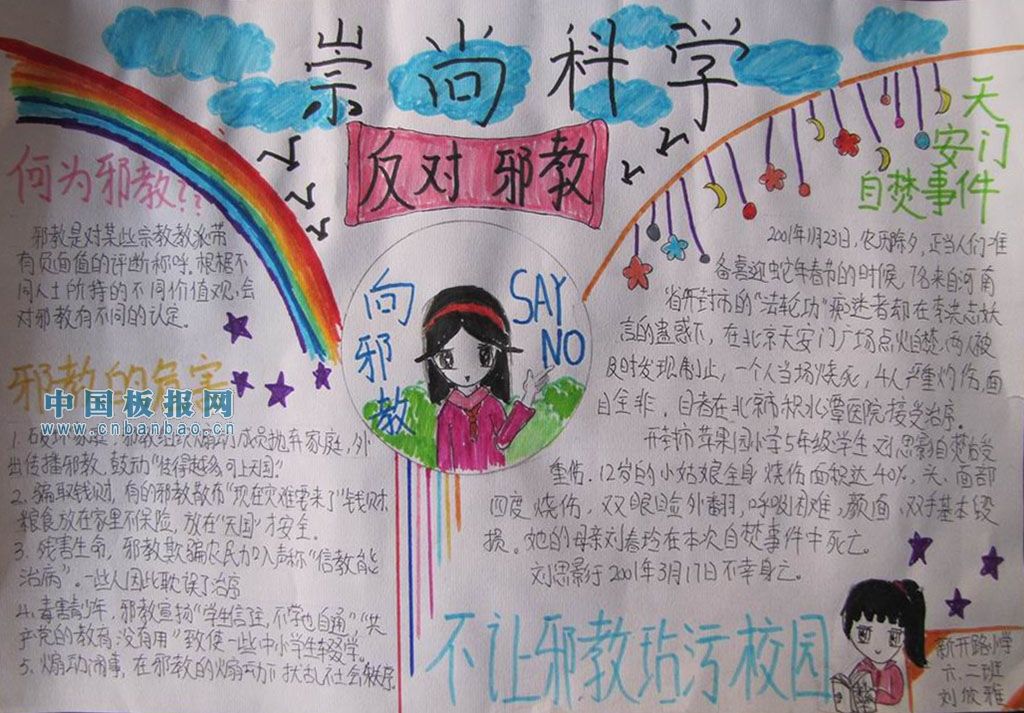 崇尚科学
反对 邪教
何为邪教??
邪教是对某些宗教教派带
有负面值的评断称呼.根据不
同人士所持的不同价值观,会
对邪教有不同的认定.
邪教的危害
中国板报网
www.cnbanbao.cn
1. 破坏家庭,邪教组织煽动成员抛弃家庭,外
出传播邪教,鼓动"传得越多可上天国"
2. 骗取钱财,有的邪教散布"现在灾难要来了"钱财.
粮食放在家里不保险,放在"天国"才安全.
3. 残害生命,邪教欺骗农民办,声称"信教能
治病".一些人因此耽误了治疗
4. 毒害青少年,邪教宣扬"学生信注,不学也自通""共
产党的教育没有用"致使一些中小学生辍学。
5. 煽动闹事,在邪教的煽动下扰乱社会秩序.
向邪教
SAY
NO
天
安门
自焚事件
2001年11月23日,农历除夕,正当人们准
备喜迎蛇年春节的时候,7名来自河南
省开封市的"法轮功"痴迷者却在李洪志妖
言的蛊惑下,在北京天安门广场点火自焚,两人被
及时发现制止,一个人当场烧死,4人严重灼伤,面
目全非,目者在北京市积水潭医院接受治疗。
开封市苹果园小学5年级学生刘思影自焚后受
重伤.12岁的小姑娘全身烧伤面积达40%,头、面部
四度烧伤,双眼睑外翻,呼吸困难,颜面、双手基本毁
损。她的母亲刘春玲在本次自焚事件中死亡。
刘思影于2001年3月17日不幸身亡。
不让邪教玷污校园
新开路小学
六.二班
刘 雅